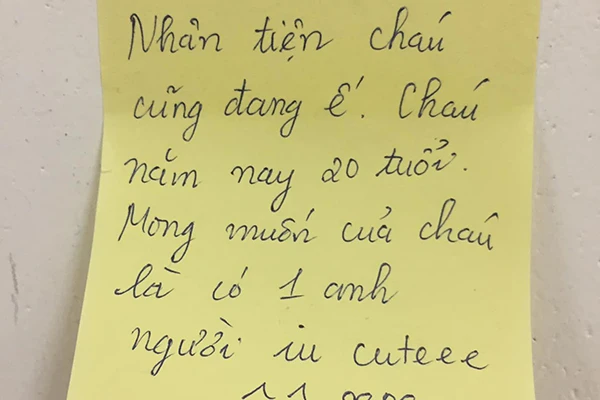 Nhân tiện cháu
cũng đang ế. Cháu
năm nay 20 tuổi.
Mong muốn của cháu
là có 1 anh
người iu cuteee